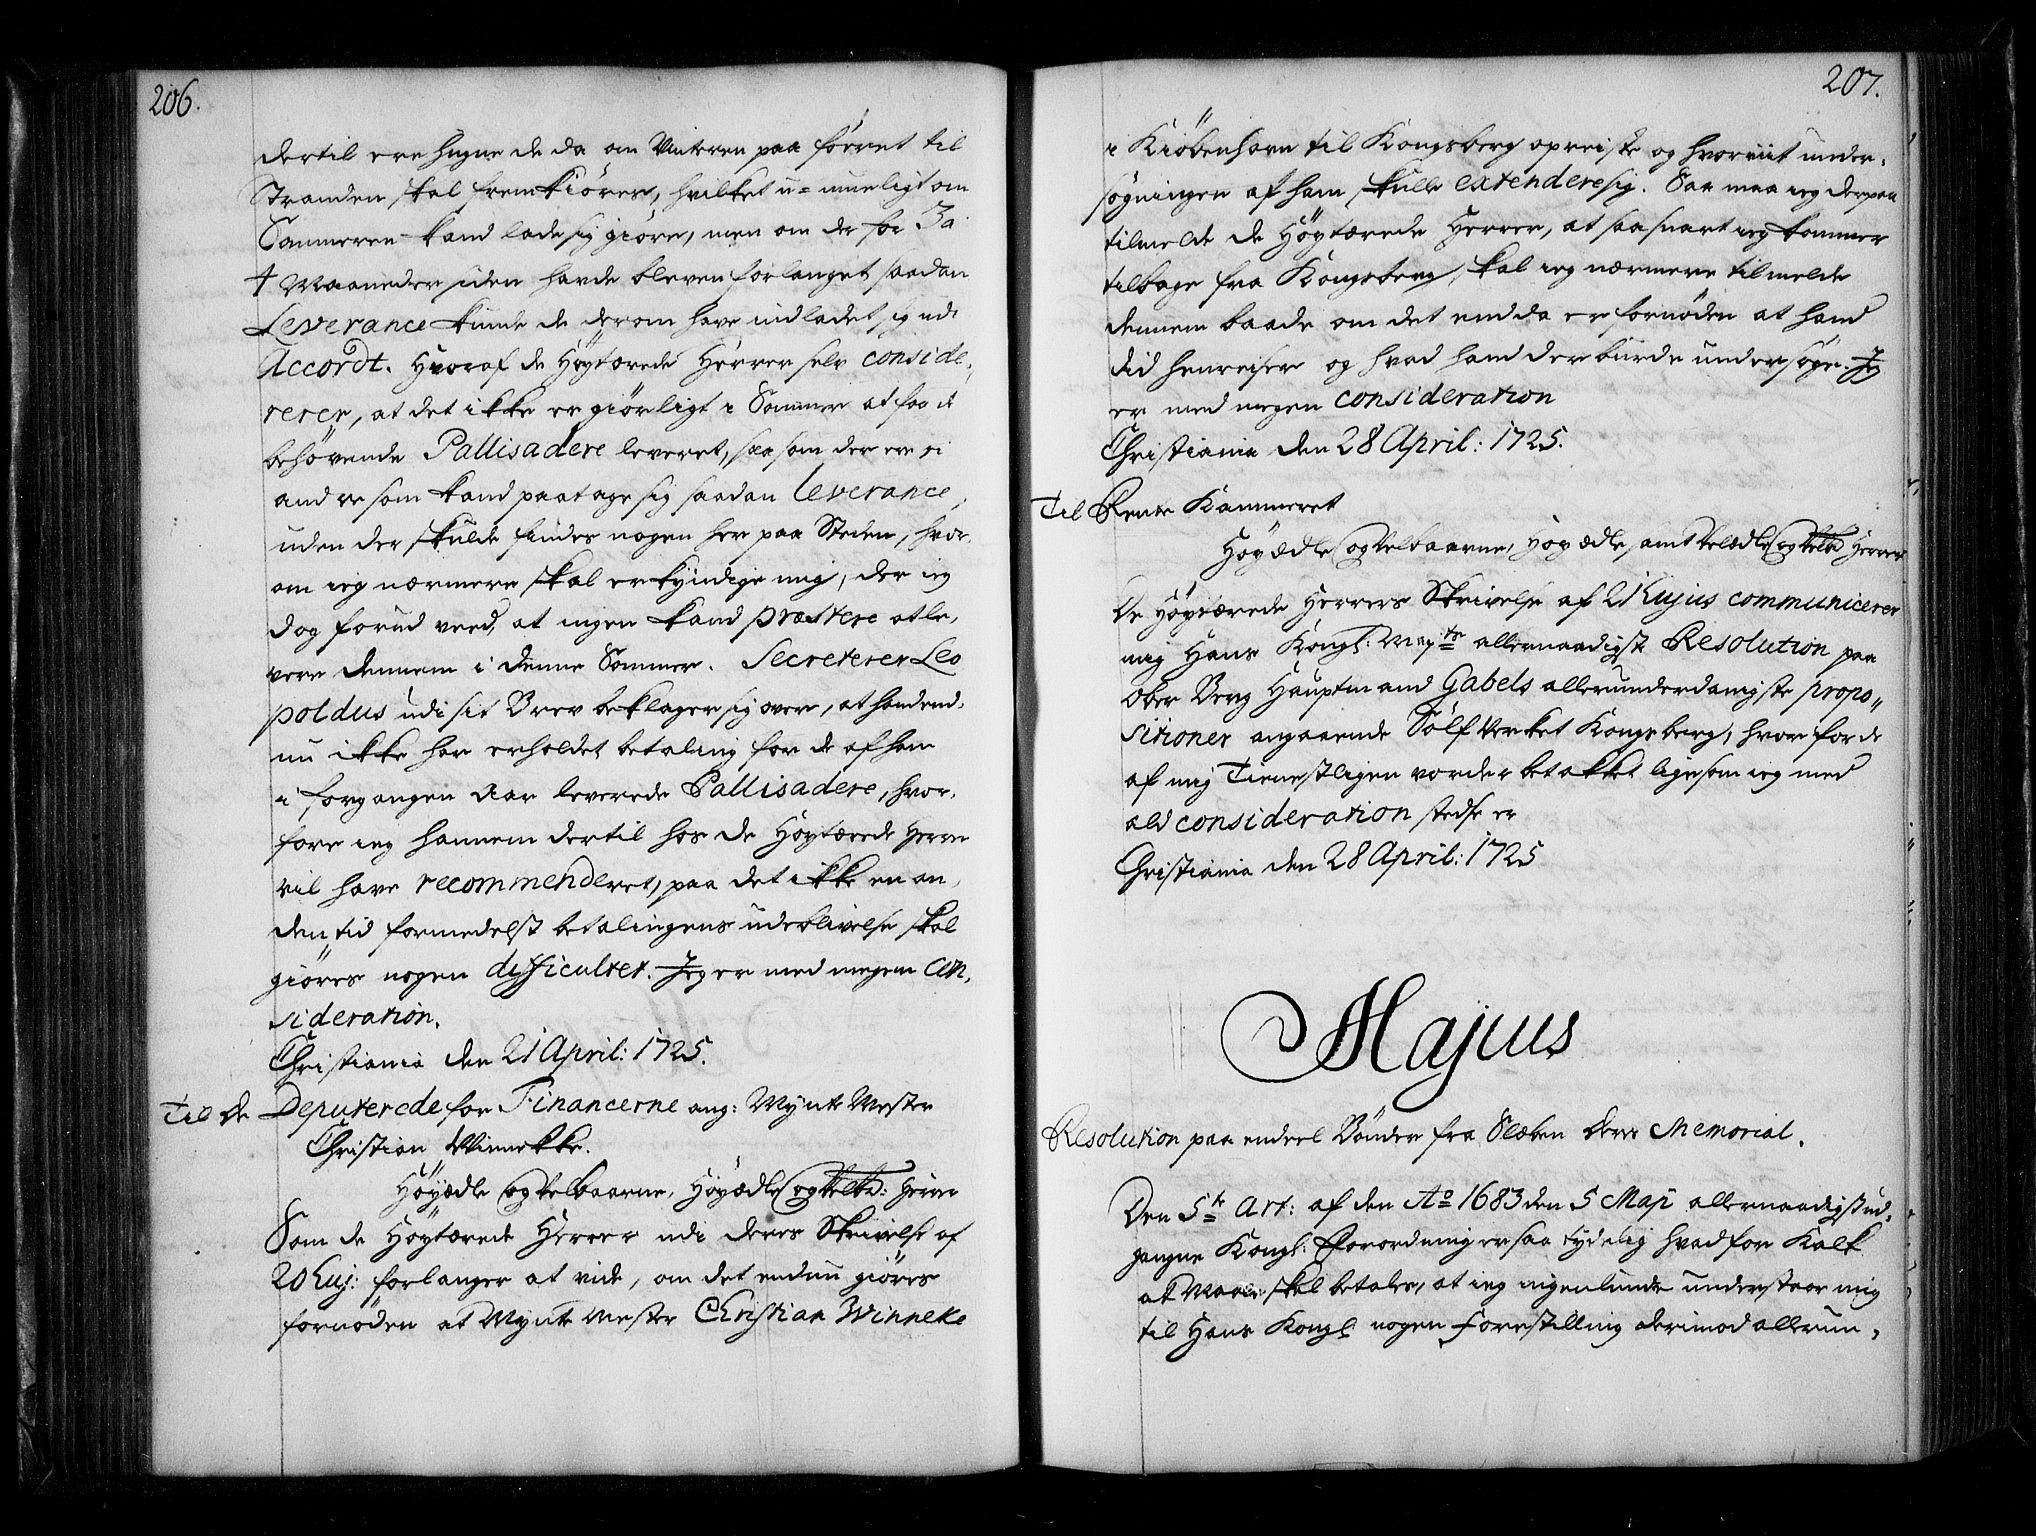 206.
dertil ere hugne de da om Vinteren paa förret til
Stranden skal fremkiöres, hvilket u-mueligt om
Sommeren kand lade sig giöre, men om der for 3 a
4 Maaneder siden havde bleven forlanget saadan
Leverance kunde de derom have indladet sig udi
Accordt. Hvoraf de Höytærede Herrer selv conside,
rerer, at det ikke er giörligt i Sommer at faa de
behövende Pallisadere leveret, saasom der ere ei
andre som kand paatage sig saadan leverance,
uden der skulde findes nogen her paa Steden, hvor,
om ieg nærmere skal erkyndige mig, der ieg
dog forud veed, at ingen kand præstere at le,
vere dennem i denne Sommer. Secreterer Leo
poldus udi sit Brev beklager sig over, at hand end,
nu ikke har erholdet betaling for de af ham
i forgangen Aar leverede Pallisadere, hvor,
fore ieg hannem dertil hos de Höytærede Herrer
vil have recommenderet, paa det ikke en an,
den tid formedelst betalingens udeblivelse skal
giöres nogen difficultet. Jeg er med megen con,
sideration.
Christiania den 21 April: 1725.
Til de Deputerede for Financerne ang: Mynt Mester
Christian Winnekke.
Höyædle og Velbaarne, Höyædle og Velb: Herrer
Som de Höytærede Herrer udi deres Skrivelse af
20 huj: forlanger at vide, om det endnu giöres
fornöden at Mynt Mester Christian Winneke
207.
i Kiöbenhavn til Kongsberg opreiste og hvorviit under,
sögningen af ham skulle extendere sig. Saa maa ieg derpaa
tilmelde de Höytærede Herrer, at saa snart ieg kommer
tilbage fra Kongsberg, skal ieg nærmere tilmelde
dennem baade om det endda er fornöden at hand
did henreiser og hvad hand der burde undersöge. Jeg
er med megen consideration
Christiania den 28 April: 1725.
Til Rente Kammeret
Höyædle og Velbaarne, Höyædle, samt Velædle og Velb Herrer
De Höytærede Herrers Skrivelse af 21 hujus communicerer
mig Hans Kongl: May:ts allernaadigste Resolution paa
Ober Berg Hauptmand Gabels allerunderdanigste propo,,
sitioner angaaende Sölfverket Kongsberg, hvorfor de
af mig Tienestligen vorder betakket ligesom ieg med
ald consideration stedse er
Christiania den 28 April: 1725
Majus
Resolution paa endeel Bönder fra Sleben deres Memorial.
Den 5te Art: af den Ao 1683 den 5 Maji allernaadigst ud,
gangne Kongl: Forordning er saa tydelig hvad for Kalk
at Maale skal betales, at ieg ingenlunde understaar mig
til Hans Kongl nogen Forestilling derimod allerun,